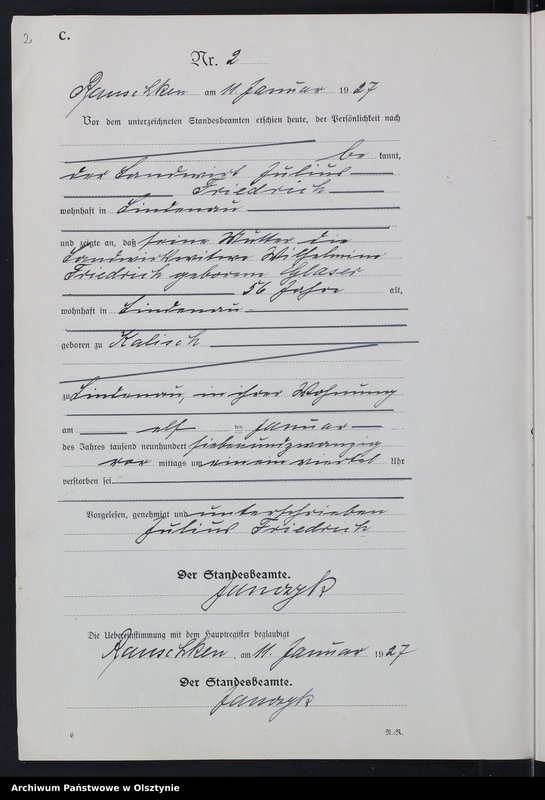 2
C.
Nr. 2
Rauschken am 11. Januar 1927
Vor dem unterzeichneten Standesbeamten erschien heute, der Persönlichkeit nach
be kannt,
der Landwirt Julius
Friedrich
wohnhaft in Lindenau
und zeigte an, daß seine Mutter die
Landwirtswitwe Wilhelmine
Friedrich geborene Glaser
56 Jahre alt,
wohnhaft in Lindenau
geboren zu Kalisch
zu Lindenau, in ihrer Wohnung
am elf ten Januar
des Jahres tausend neunhundert siebenundzwanzig
vor mittags um ein viertel Uhr
verstorben sei.
Vorgelesen, genehmigt und unterschrieben
Julius Friedrich
Der Standesbeamte.
Janczyk
Die Uebereinstimmung mit dem Hauptregister beglaubigt
Rauschken, am 11. Januar 1927
Der Standesbeamte.
Janczyk
6 N.-R.
Archiwum Państwowe w Olsztynie